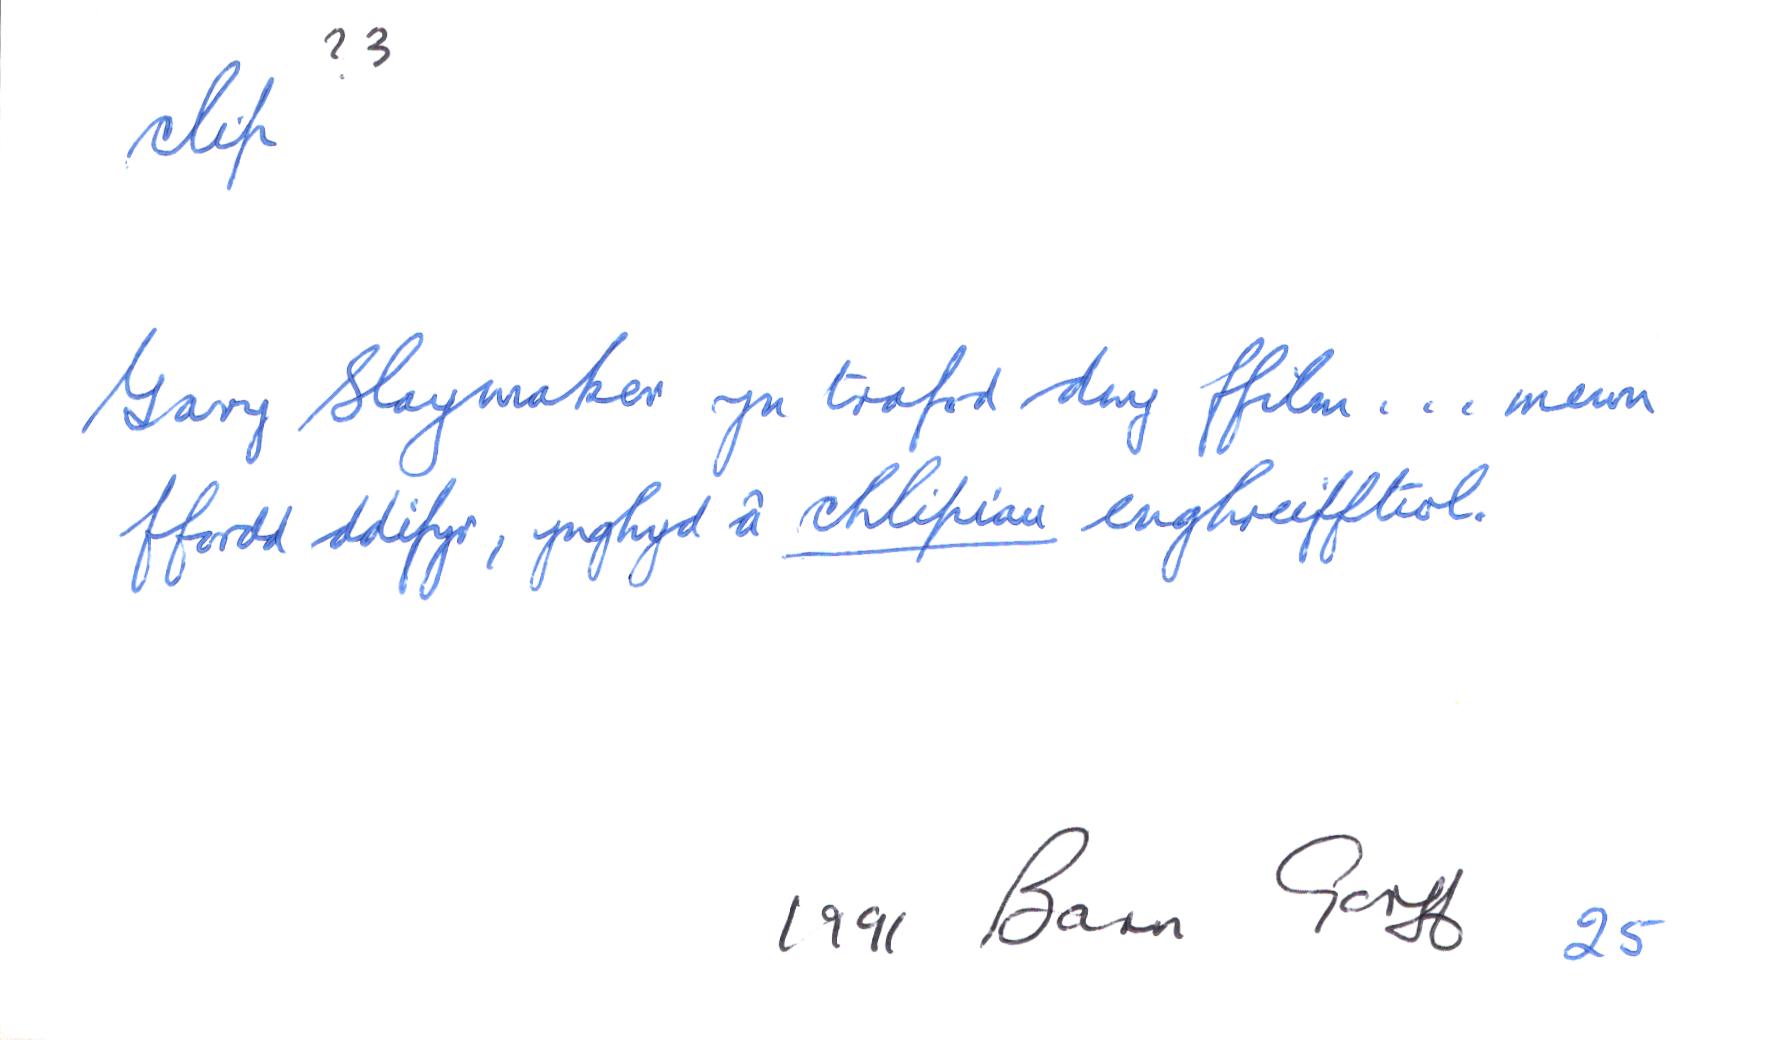 clip ? 3
Gary Slaymaker yn trafod dwy ffilm . . . mewn
ffordd ddifyr, ynghyd â chlipiau enghreifftiol.
1991 Barn Gorff 25